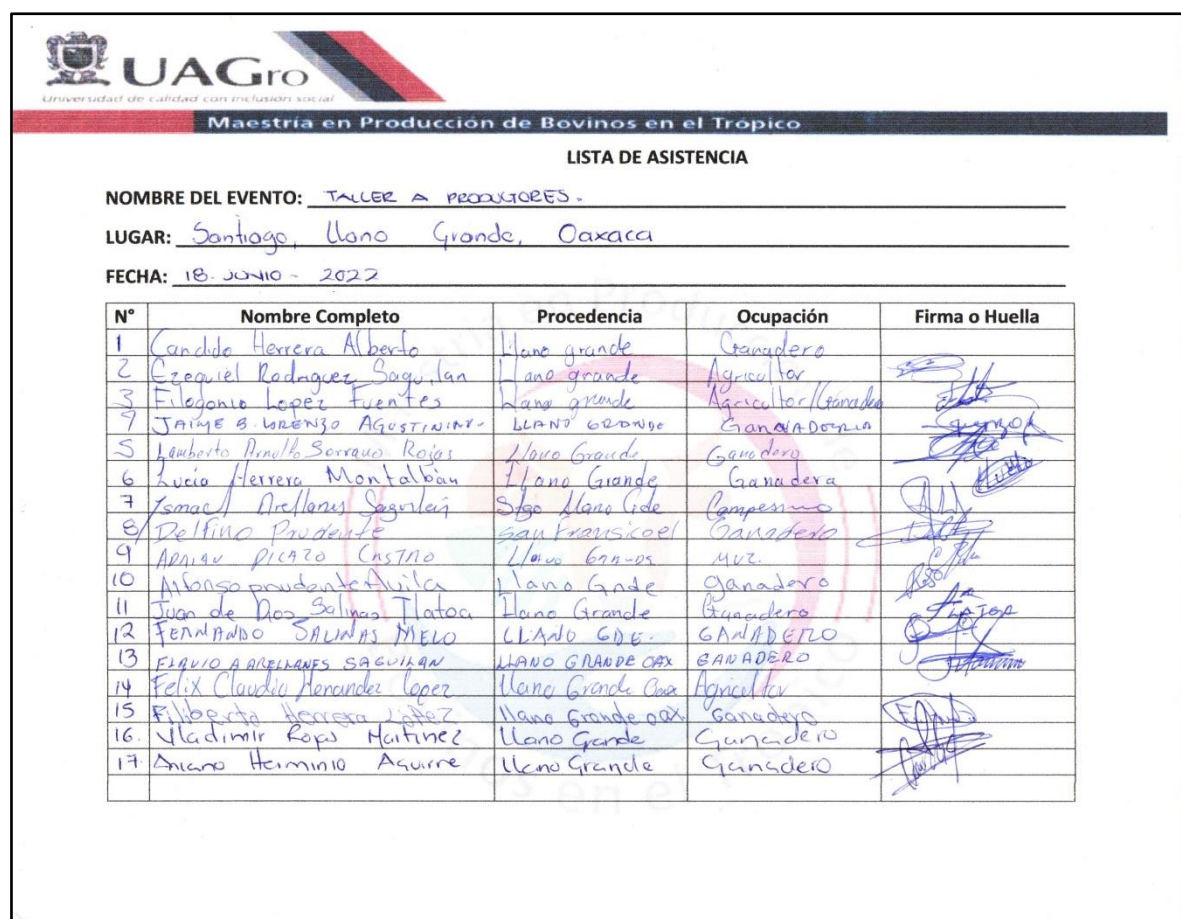 UAGro
Universidad de calidad con inclusión social
Maestría en Producción de Bovinos en el Trópico
LISTA DE ASISTENCIA
NOMBRE DEL EVENTO: TALLER A PRODUCTORES.
LUGAR: Santiago, Llano Grande, Oaxaca
FECHA: 18. JUNIO - 2022
N° Nombre Completo Procedencia Ocupación Firma o Huella
1 Candido Herrera Alberto Llano grande Ganadero
2 Ezequiel Rodriguez Saguilan Llano grande Agricultor
3 Filogonio Lopez Fuentes Llano grande Agricultor/Ganadero
JAIME B. LORENZO LLANO GRANDE
5 Lamberto Arnulfo Serrano Rojas Llano Grande Ganadero
6 Lucia Herrera Montalbán Llano Grande Ganadera
7 Ismael Arellanes Saguilán Stgo Llano Gde Campesino
8 Delfino Prudente San Fransicoel Ganadero
9 ADRIAN PICAZO CASTRO Llano GRANDE MVZ.
10 Alfonso prudente Avila Llano Gnde ganadero
11 Juan de Dios Salinas Tlatoa Llano Grande Ganadero
12 FERNANDO SALINAS MELO LLANO GDE. GANADERO
13 FLAVIO A ARELLANES SAGUILAN LLANO GRANDE OAX GANADERO
14 Felix Claudio Hernandez Lopez Llano Grande Oax Agricultor
15 Filiberto Herrera López llano Grande oax Ganadero
16. Vladimir Rojas Martinez Llano Grande Ganadero
17. Aniano Herminio Aguirre Llano Grande Ganadero